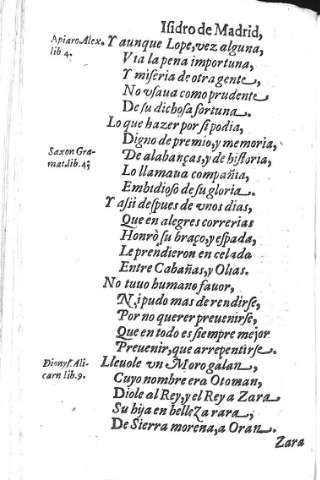 Isidro de Madrid,
Apiaro Alex.
lib 4.
Y aunque Lope, vez alguna,
Vìa la pena importuna,
Y miseria de otra gente,
No vsaua como prudente
De su dichosa fortuna.
Lo que hazer por si podia,
Digno de premio, y memoria,
Saxon Gra-
mat. lib. 4;
De alabanças, y de historia,
Lo llamaua compañia,
Embidioso de su gloria.
Y assi despues de vnos dias,
Que en alegres correrias
Honrò su braço, y espada,
Le prendieron en celada
Entre Cabañas, y Olias.
No tuuo humano fauor,
Ni pudo mas de rendirse,
Por no querer preuenirse,
Que en todo es siempre mejor
Preuenir, que arrepentirse.
Dionys. Ali-
carn lib. 9.
Lleuole vn Moro galan,
Cuyo nombre era Otoman,
Diole al Rey, y el Rey a Zara
Su hija en belleza rara,
De Sierra morena, a Oran.
Zara